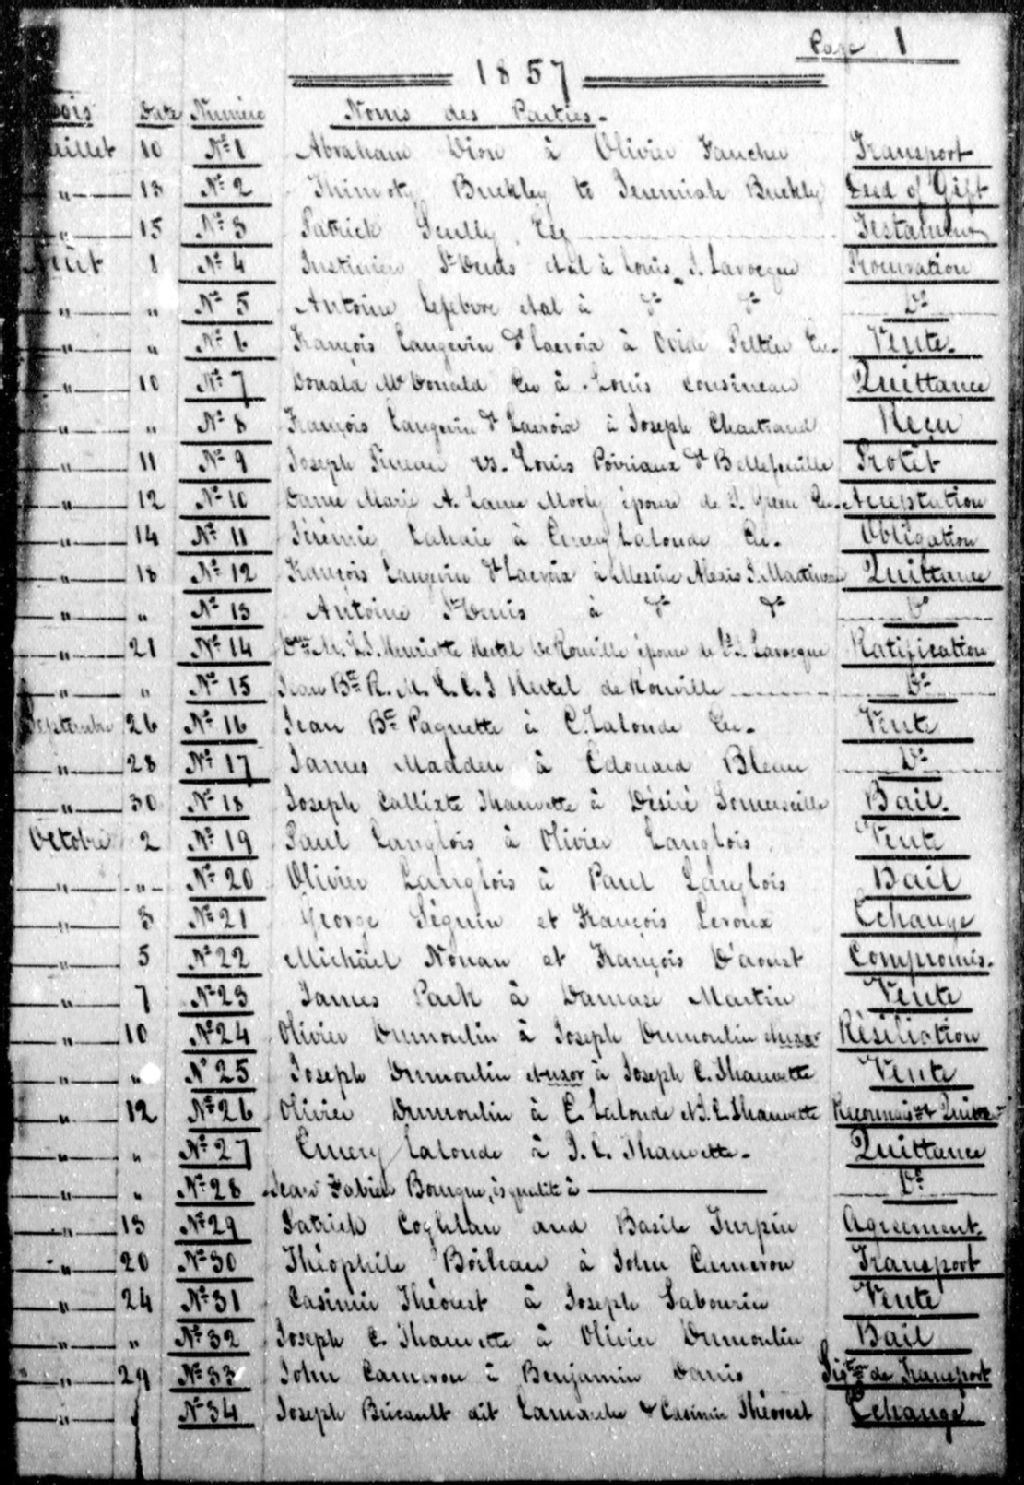 Page 1
1857
Mois Date Numéro Noms des Parties -
Juillet 10 No 1 Abraham Dion à Olivier Faucher Transport
" 13 No 2 Thimoty Buckley to Jeremiah Buckley Deed of Gift
" 15 No 3 Patrick Scully, Esq Testament
Août 1 No 4 St Denis et al à Louis J. Larocque Procuration
" " No 5 Antoine Lefebvre et al à do do Do
" " No 6 François Langevin dt Lacroix à Ovide Peltier Ec. Vente.
" 10 No 7 Donald McDonald Ec à Louis Cousineau Quittance
" " No 8 François Langevin dt Lacroix à Joseph Chartrand Reçu
" 11 No 9 Joseph Pineau vs. Louis Poiriaux dt Bellefeuille Protêt
" 12 No 10 Dame Marie A. Laura Morly épouse de Ec. Acceptation
" 14 No 11 Jérémie Lahaie à Emery Lalonde Ec. Obligation
" 18 No 12 François Langevin dt Lacroix à Messire Alexis J. Martineau Quittance
" " No 13 Antoine St Denis à do do Do
" 21 No 14 Henriette Hertel de Rouville épouse de Ls J. Larocque Ratification
" " No 15 Jean Bte R. M. L. C. J Hertel de Rouville Do
Septembre 26 No 16 Jean Bte Paquette à E. Lalonde Ec. Vente
" 28 No 17 James Madden à Edouard Bleau Do
" 30 No 18 Joseph Callixte Thauvette à Désiré Somerville Bail.
Octobre 2 No 19 Paul Langlois à Olivier Langlois Vente
" " No 20 Olivier Langlois à Paul Langlois Bail
" 3 No 21 George Séguin et François Leroux Echange
" 5 No 22 Michäel Nonan et François D'aoust Compromis.
" 7 No 23 James Park à Damase Martin Vente
" 10 No 24 Olivier Dumoulin à Joseph Dumoulin et uxor Résiliation
" " No 25 Joseph Dumoulin et uxor à Joseph C. Thauvette Vente
" 12 No 26 Olivier Dumoulin à E. Lalonde et J. C. Thauvette
" " No 27 Emery Lalonde à J. C. Thauvette. Quittance
" " No 28 Jean Fabien Bourque, ès qualité à Do
" 13 No 29 Patrick Coghlan and Basile Turpin Agreement.
" 20 No 30 Théophile Boileau à John Cameron Transport
" 24 No 31 Casimir Théorest à Joseph Sabourin Vente
" " No 32 Joseph C. Thauvette à Olivier Dumoulin Bail
" 29 No 33 John Cameron à Benjamin Danis de Transport
" " No 34 Joseph Bricault dit Lamarche & Casimir Théorest Echange